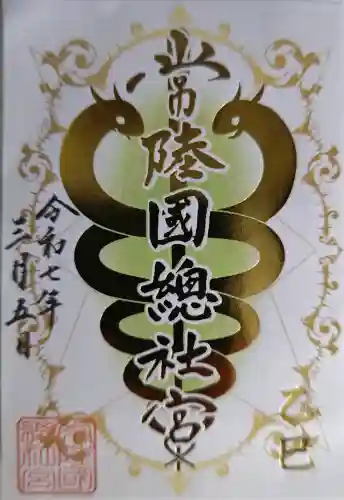 常陸國總社宮
令和七年
三月五日
乙巳